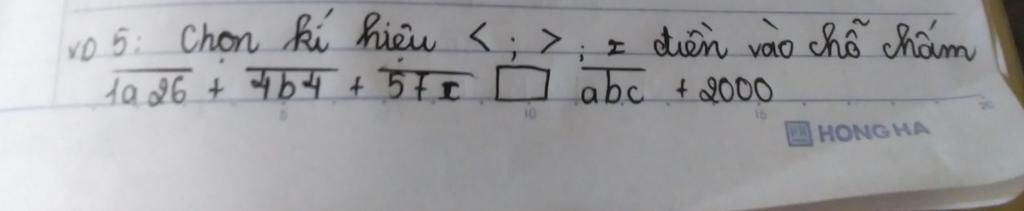 VD 5: Chọn kí hiệu < ; > ; = điền vào chỗ chấm
1a26 + 4b4 + 57c □ abc + 2000
5 10 15 20
HONG HA